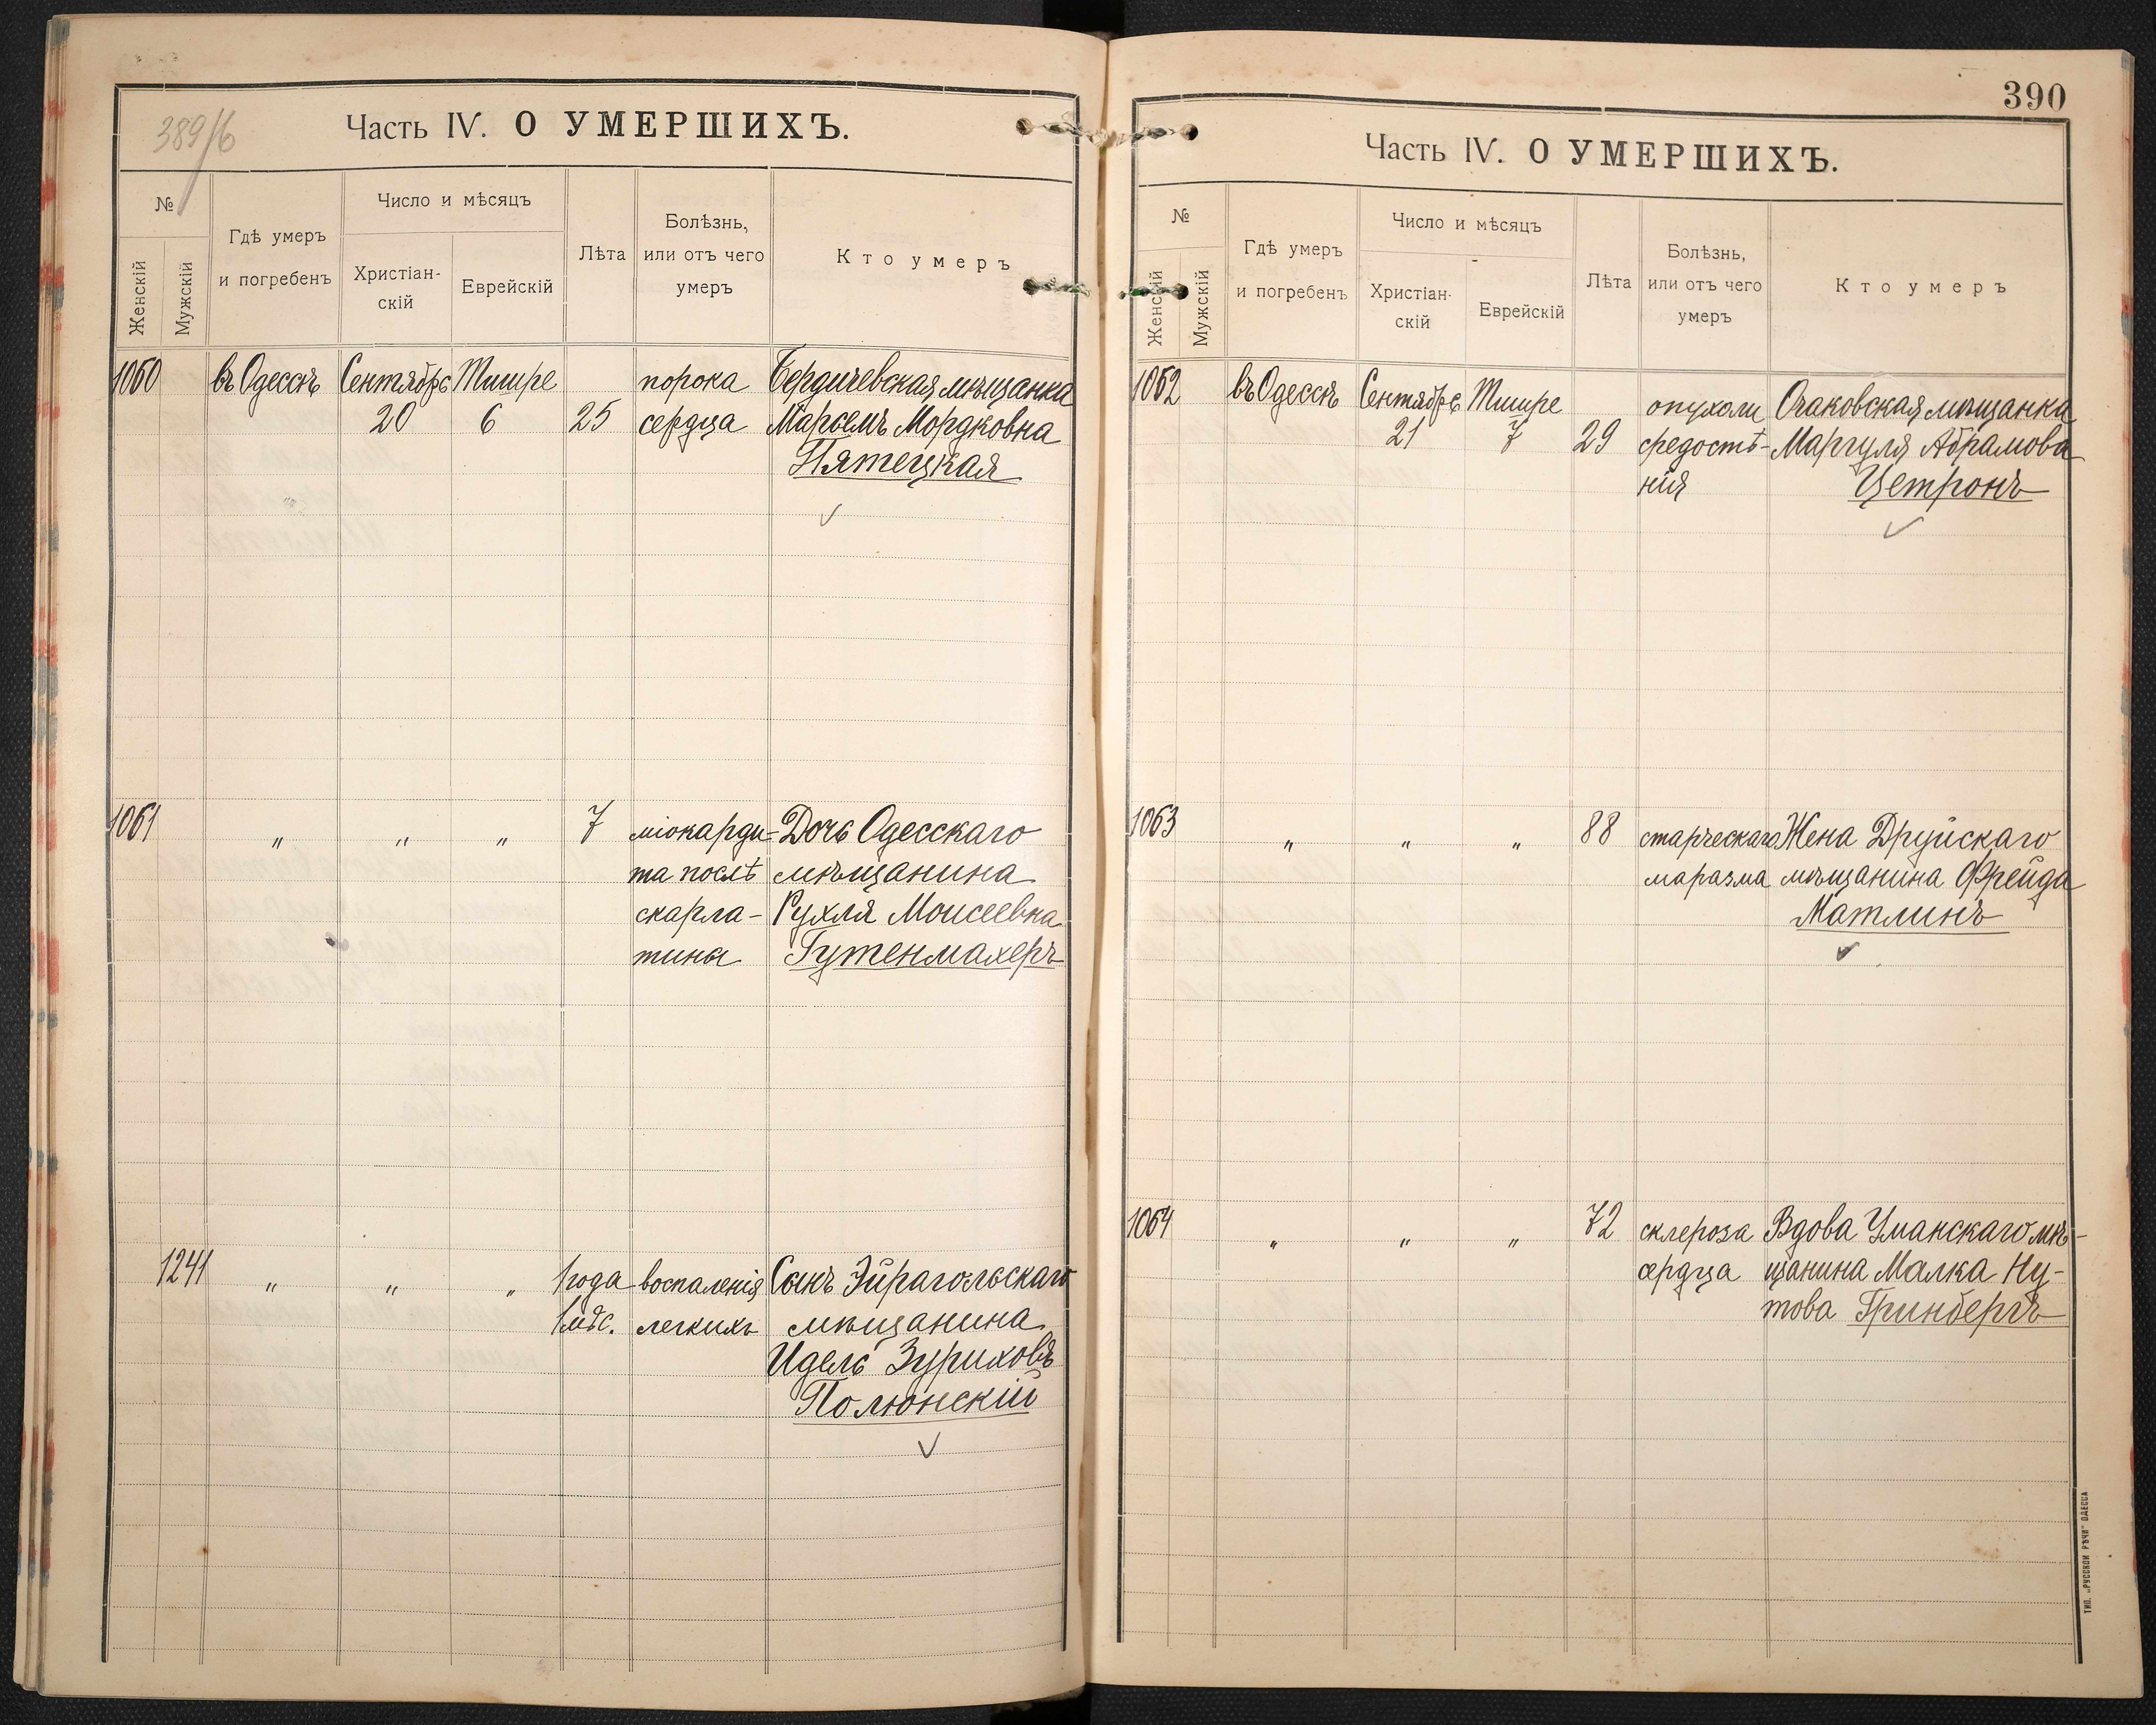 389/б
Часть IV. О УМЕРШИХЪ.
№
Женскій
Мужскій
Гдѣ умеръ
и погребенъ
Число и мѣсяцъ
Христіан-
скій
Еврейскій
Лѣта
Болѣзнь,
или отъ чего
умеръ
Кто умеръ
1060 въ Одессѣ Сентябрь Тишре порока Бердичевская мѣщанка
20 6 25 сердца Марьемъ Мордковна
Пятецкая
1061 " " " 7 міокарди- Дочь Одесскаго
та послѣ мѣщанина
скарла- Рухля Моисеевна
тины Гутенмахеръ
1241 " " " 1 года воспаленія Сынъ Эйрагольскаго
1 мѣс. легкихъ мѣщанина
Идель Зуриховъ
Полюнскій
390
Часть IV. О УМЕРШИХЪ.
№
Женскій
Мужскій
Гдѣ умеръ
и погребенъ
Число и мѣсяцъ
Христіан-
скій
Еврейскій
Лѣта
Болѣзнь,
или отъ чего
умеръ
Кто умеръ
1062 въ Одессѣ Сентябрь Тишре опухоли Очаковская мѣщанка
21 7 29 средостѣ- Маргуля Абрамова
нія Цетронъ
1063 " " " 88 старческаго Жена Друйскаго
маразма мѣщанина Фрейда
Матлинъ
1064 " " " 72 склероза Вдова Уманскаго мѣ-
сердца щанина Малка Ну-
това Гринбергъ
ТИП. „РУССКОЙ РѢЧИ" ОДЕССА